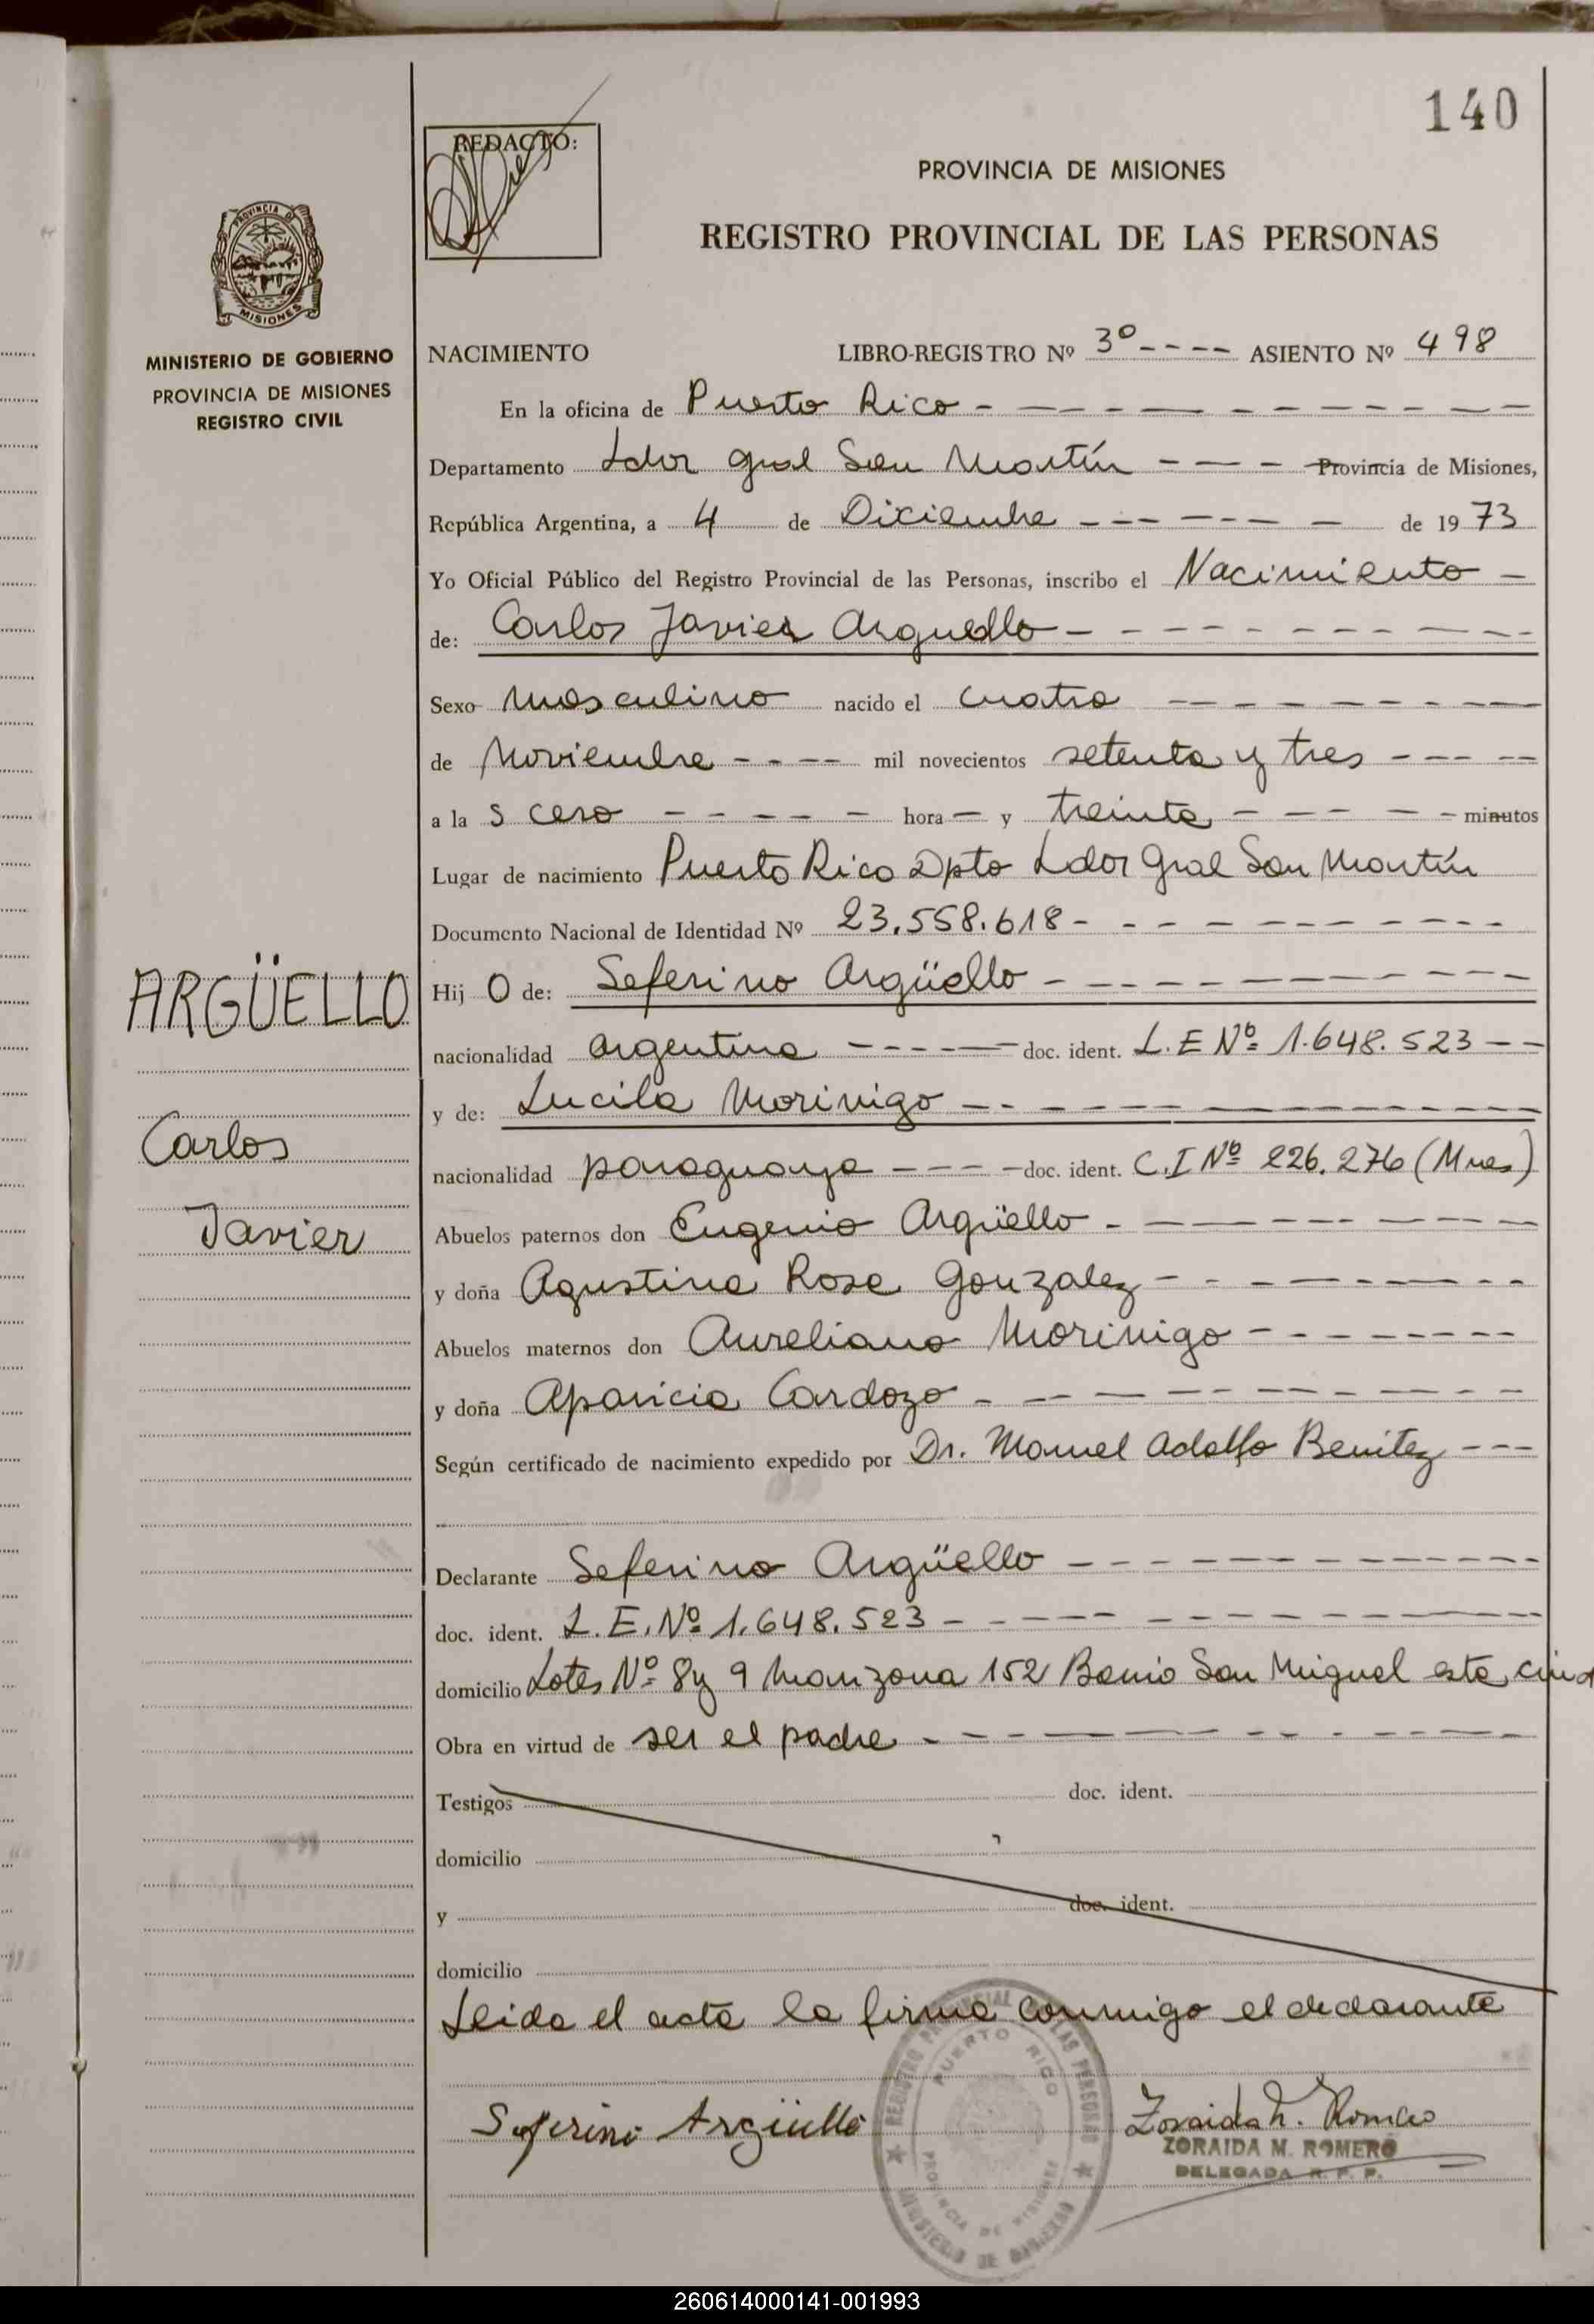 140
REDACTO:
PROVINCIA DE MISIONES
REGISTRO PROVINCIAL DE LAS PERSONAS
PROVINCIA DE
MISIONES
MINISTERIO DE GOBIERNO
PROVINCIA DE MISIONES
REGISTRO CIVIL
NACIMIENTO LIBRO-REGISTRO Nº 3º ---- ASIENTO Nº 498
En la oficina de Puerto Rico
Departamento Ldor Gral San Martín --- Provincia de Misiones,
República Argentina, a 4 de Diciembre de 1973
Yo Oficial Público del Registro Provincial de las Personas, inscribo el Nacimiento
de: Carlos Javier Arguello
Sexo Masculino nacido el cuatro
de Noviembre ---- mil novecientos setenta y tres
a la s cero hora y treinta minutos
Lugar de nacimiento Puerto Rico Dpto Ldor Gral San Martín
Documento Nacional de Identidad Nº 23.558.618
ARGÜELLO
Carlos
Javier
Hij O de: Seferino Argüello
nacionalidad argentina doc. ident. L.E Nº 1.648.523
y de: Lucila Morinigo
nacionalidad paraguaya doc. ident. C.I Nº 226.276 (Mnes)
Abuelos paternos don Eugenio Argüello
y doña Agustina Rosa Gonzalez
Abuelos maternos don Aureliano Morinigo
y doña Aparicia Cardozo
Según certificado de nacimiento expedido por Dr. Manuel Adolfo Benitez
Declarante Seferino Argüello
doc. ident. L.E. Nº 1.648.523
domicilio Lotes Nº 8 y 9 Manzana 152 Barrio San Miguel esta ciud
Obra en virtud de ser el padre
Testigos doc. ident.
domicilio
y doc. ident.
domicilio
Leida el acta la firma conmigo el declarante
REGISTRO PROVINCIAL DE LAS PERSONAS
PUERTO RICO
PROVINCIA DE MISIONES
MINISTERIO DE GOBIERNO
Seferino Argüello
Zoraida M. Romero
ZORAIDA M. ROMERO
DELEGADA R. P. P.
260614000141-001993